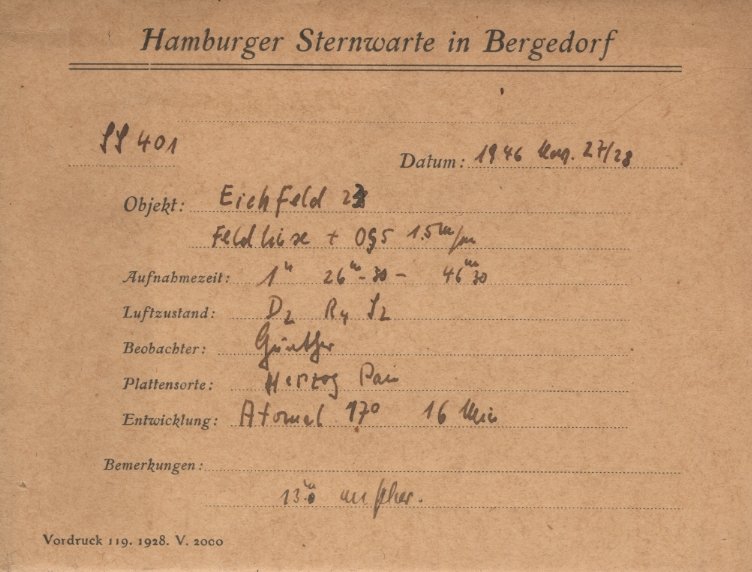 Hamburger Sternwarte in Bergedorf
SS 401
Datum: 1946 27/28
Objekt: Eichfeld
Feldlinse + OG5 1.5 m/m
Aufnahmezeit: 1ʰ 26ᵐ 30 – 46ᵐ 30
Luftzustand: D2 R4 S2
Beobachter: Günther
Plattensorte: Herzog Pan
Entwicklung: Atomal 17° 16 Min
Bemerkungen:
Vordruck 119. 1928. V. 2000